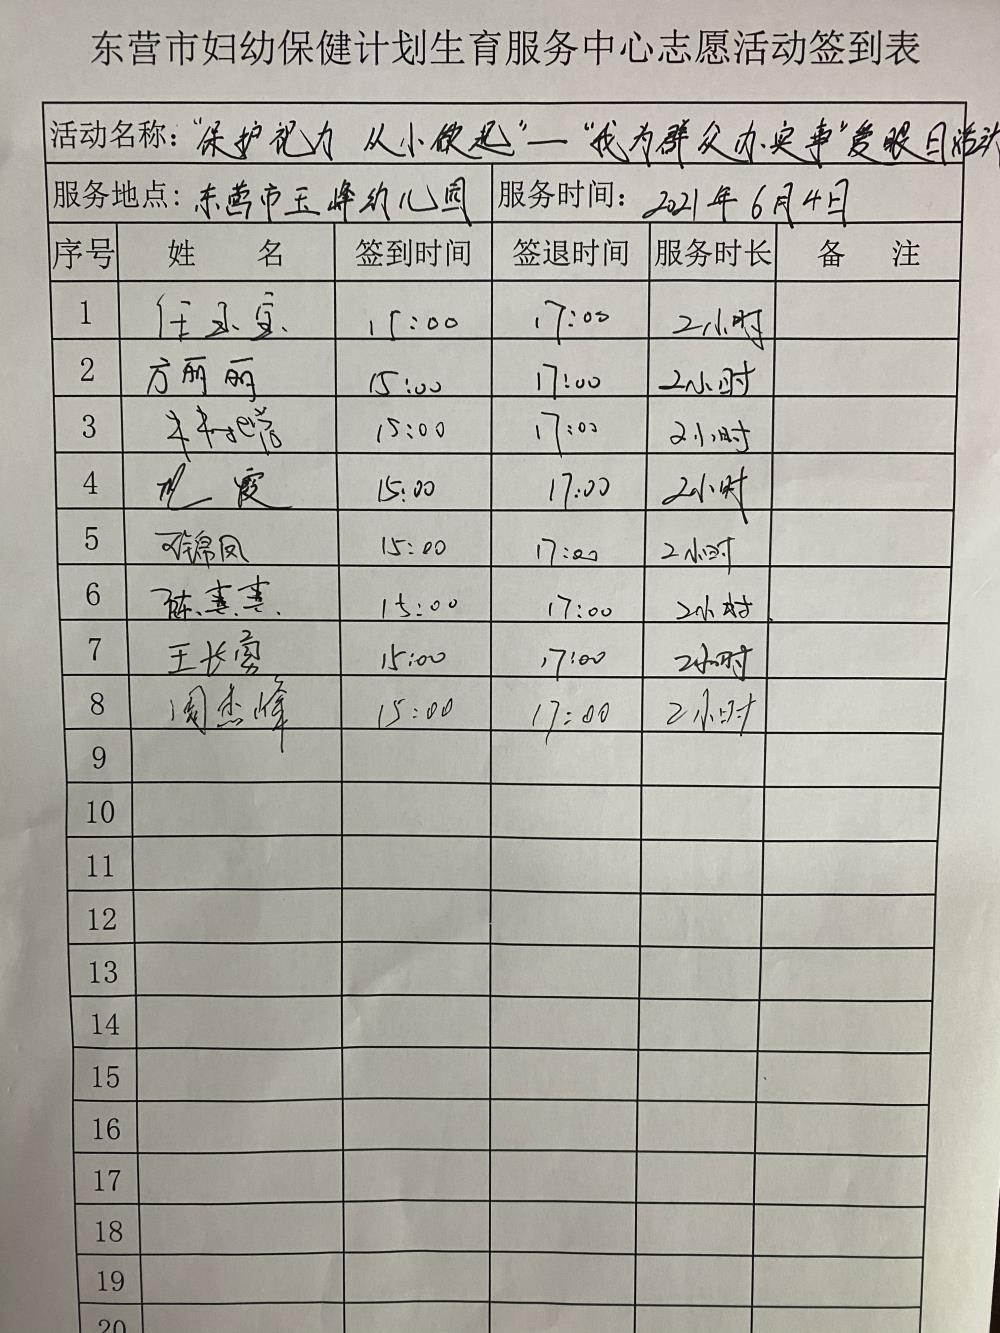 东营市妇幼保健计划生育服务中心志愿活动签到表
活动名称：“保护视力 从小做起”—“我为群众办实事”爱眼日活动
服务地点：东营市玉峰幼儿园 服务时间：2021年6月4日
序号 姓 名 签到时间 签退时间 服务时长 备 注
1 任玉宝 15:00 17:00 2小时
2 方丽丽 15:00 17:00 2小时
3 15:00 17:00 2小时
4 霞 15:00 17:00 2小时
5 锦凤 15:00 17:00 2小时
6 陈 15:00 17:00 2小时
7 王长勇 15:00 17:00 2小时
8 周杰峰 15:00 17:00 2小时
9
10
11
12
13
14
15
16
17
18
19
20